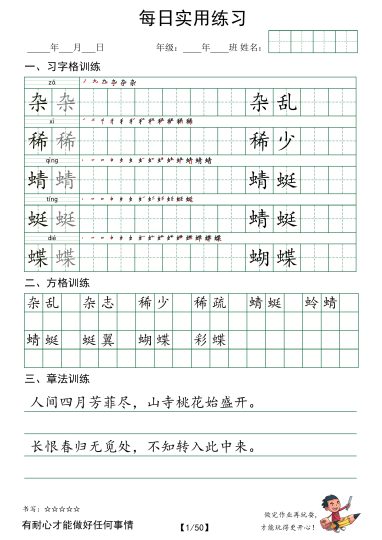 每日实用练习
_____年___月___日 年级：____年____班 姓名：
一、习字格训练
zá
杂 杂 杂 乱
xī
稀 稀 稀 少
qīng
蜻 蜻 蜻 蜓
tíng
蜓 蜓 蜻 蜓
dié
蝶 蝶 蝴 蝶
二、方格训练
杂乱 杂志 稀少 稀疏 蜻蜓 蛉蜻
蜻蜓 蜓翼 蝴蝶 彩蝶
三、章法训练
人间四月芳菲尽，山寺桃花始盛开。
长恨春归无觅处，不知转入此中来。
书写：☆☆☆☆☆
有耐心才能做好任何事情
【1/50】
做完作业再玩耍，
才能玩得更开心！